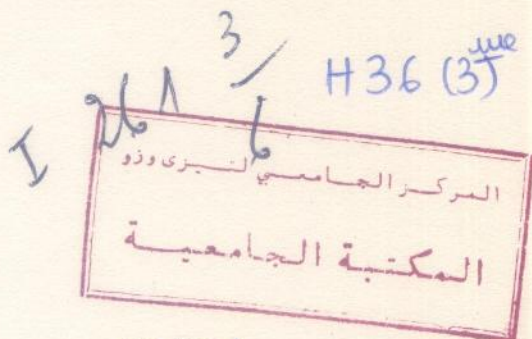 H36 (3)ème
I 261 3/6
المركز الجامعي لتيزي وزو
المكتبة الجامعية